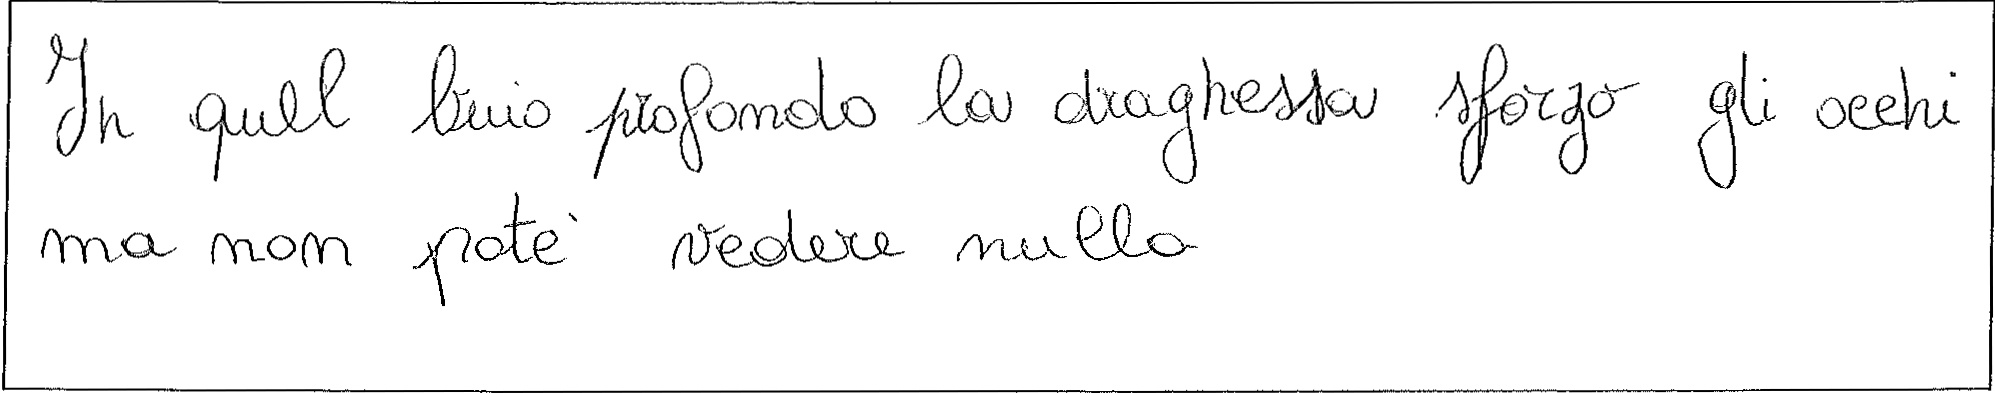 In quel buio profondo la draghessa sforzo gli occhi
ma non potè vedere nulla